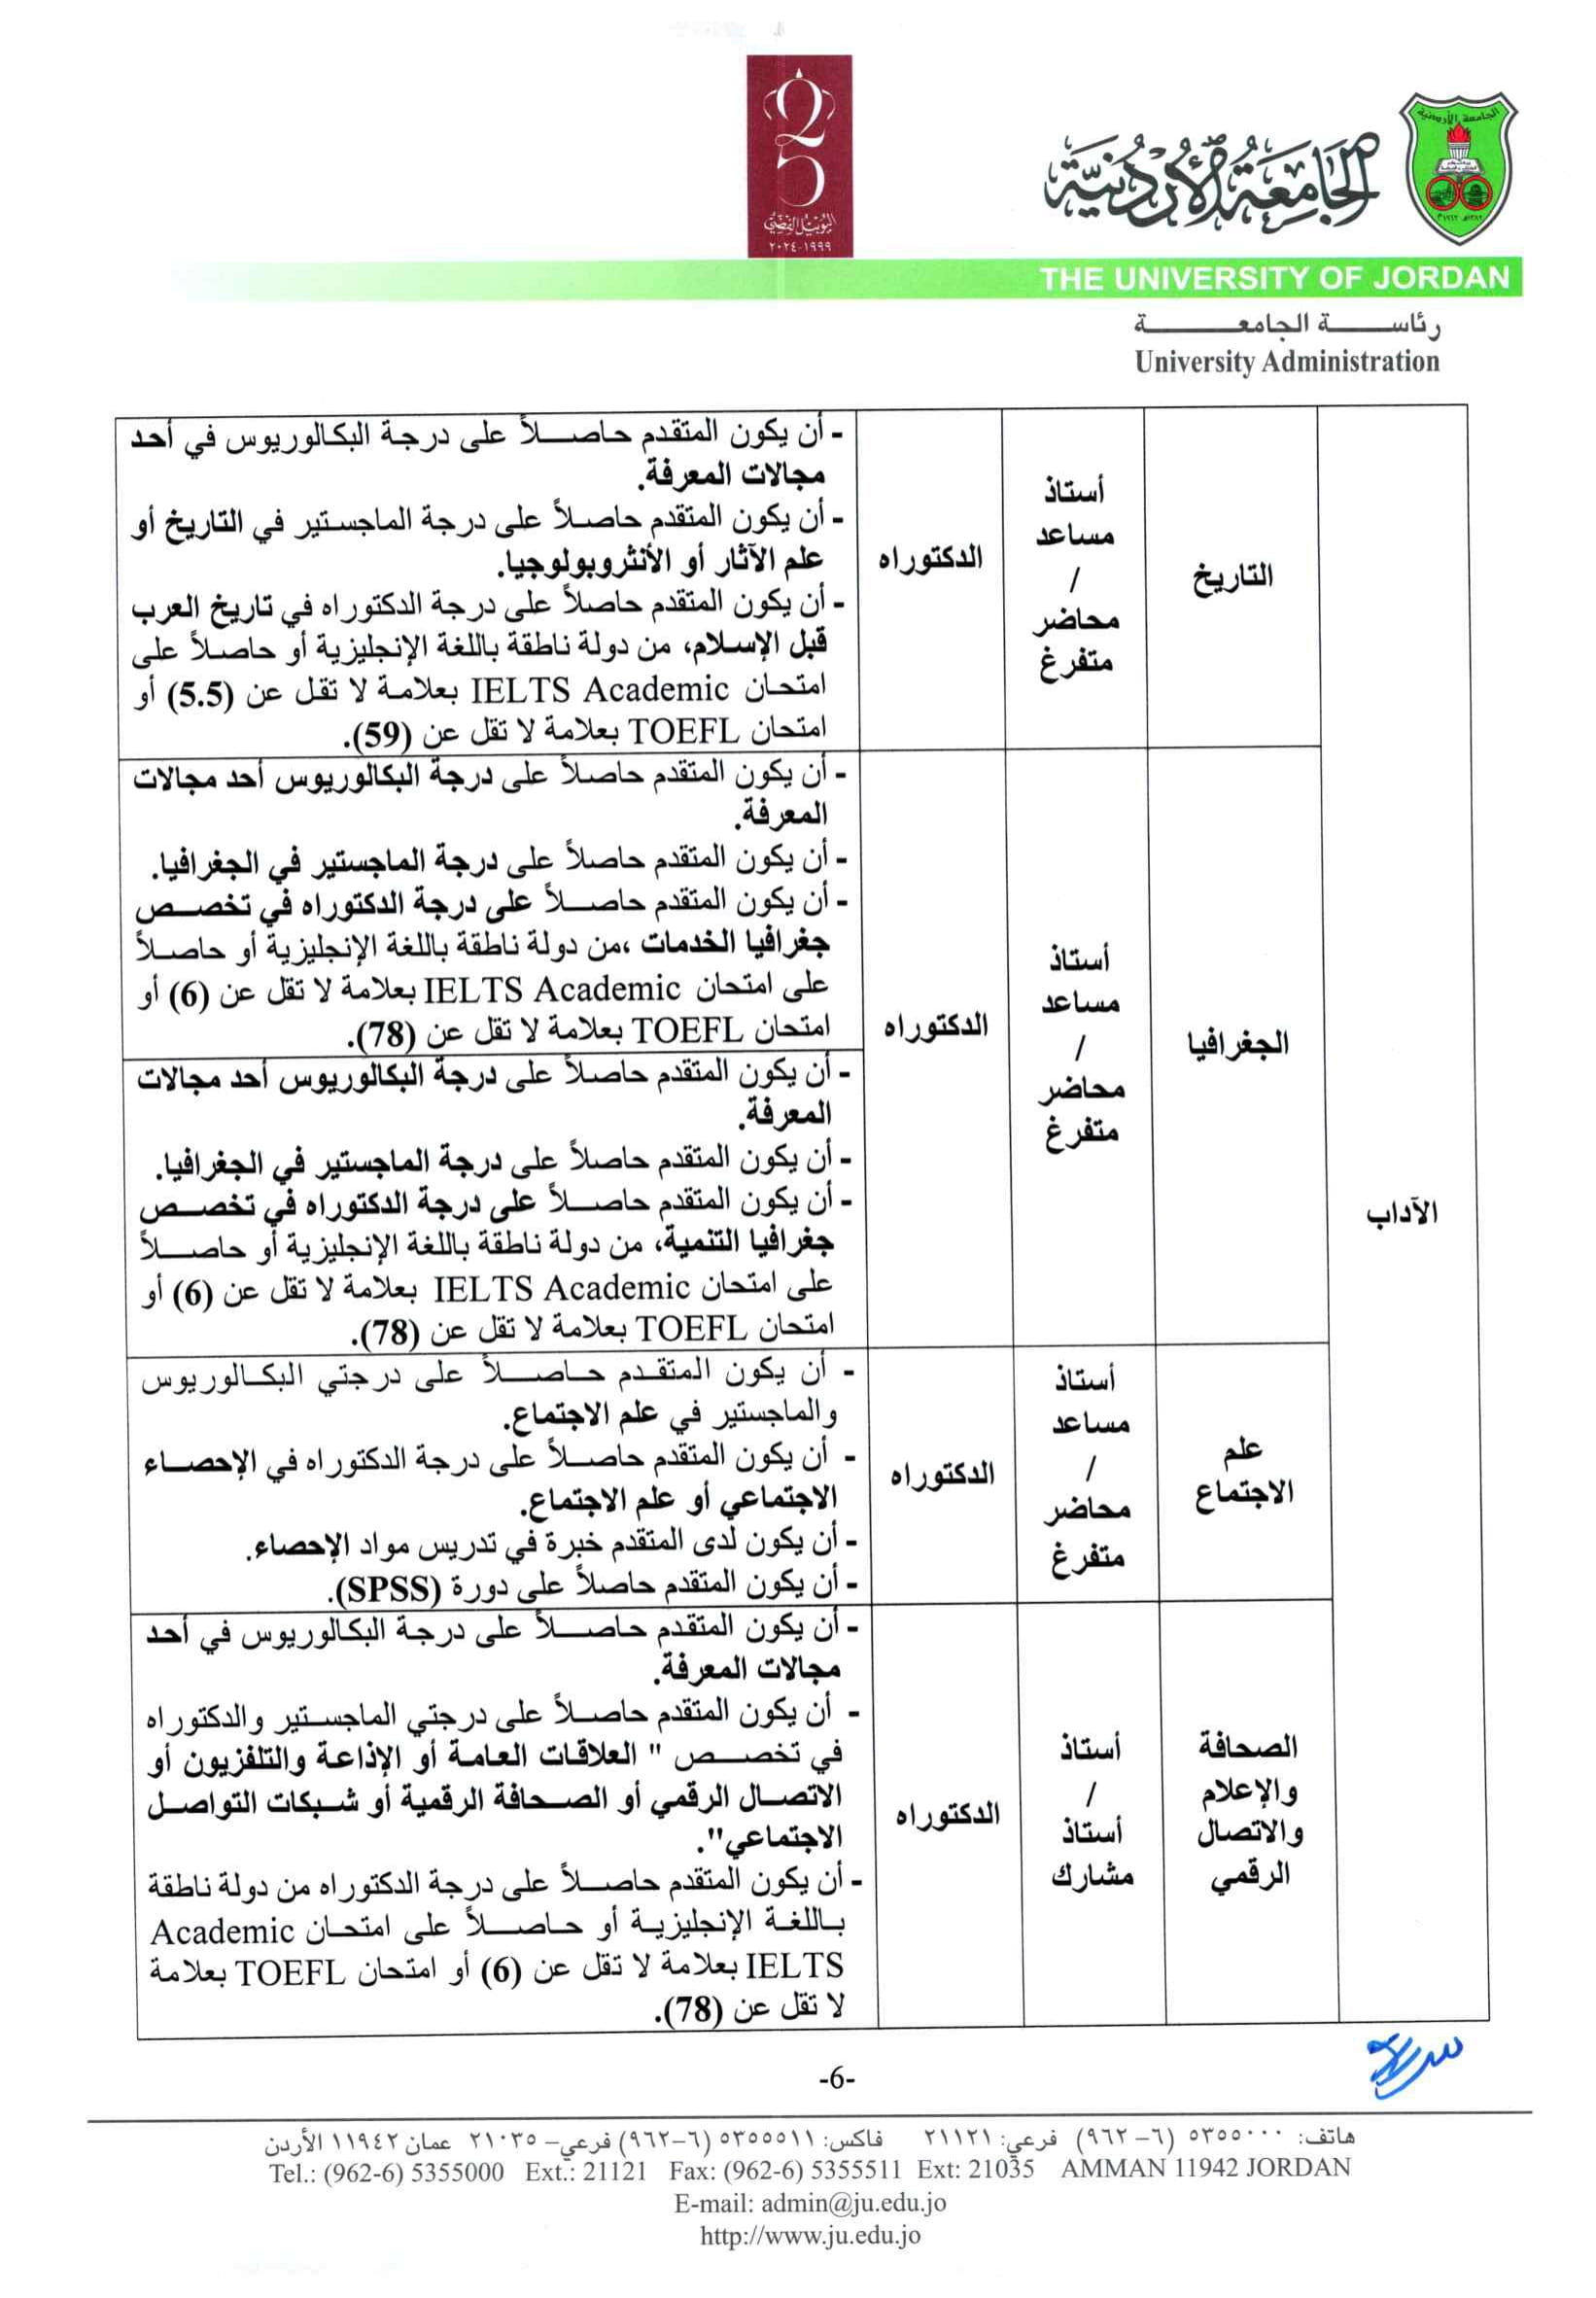 الجامعة الأردنية
اليوبيل الفضي
١٩٩٩-٢٠٢٤
الجامعة الأردنية
THE UNIVERSITY OF JORDAN
رئاسة الجامعة
University Administration
الآداب
التاريخ
أستاذ
مساعد
/
محاضر
متفرغ
الدكتوراه
- أن يكون المتقدم حاصلاً على درجة البكالوريوس في أحد
مجالات المعرفة.
- أن يكون المتقدم حاصلاً على درجة الماجستير في التاريخ أو
علم الآثار أو الأنثروبولوجيا.
- أن يكون المتقدم حاصلاً على درجة الدكتوراه في تاريخ العرب
قبل الإسلام، من دولة ناطقة باللغة الإنجليزية أو حاصلاً على
امتحان IELTS Academic بعلامة لا تقل عن (5.5) أو
امتحان TOEFL بعلامة لا تقل عن (59).
الجغرافيا
أستاذ
مساعد
/
محاضر
متفرغ
الدكتوراه
- أن يكون المتقدم حاصلاً على درجة البكالوريوس أحد مجالات
المعرفة.
- أن يكون المتقدم حاصلاً على درجة الماجستير في الجغرافيا.
- أن يكون المتقدم حاصلاً على درجة الدكتوراه في تخصص
جغرافيا الخدمات ،من دولة ناطقة باللغة الإنجليزية أو حاصلاً
على امتحان IELTS Academic بعلامة لا تقل عن (6) أو
امتحان TOEFL بعلامة لا تقل عن (78).
- أن يكون المتقدم حاصلاً على درجة البكالوريوس أحد مجالات
المعرفة.
- أن يكون المتقدم حاصلاً على درجة الماجستير في الجغرافيا.
- أن يكون المتقدم حاصلاً على درجة الدكتوراه في تخصص
جغرافيا التنمية، من دولة ناطقة باللغة الإنجليزية أو حاصلاً
على امتحان IELTS Academic بعلامة لا تقل عن (6) أو
امتحان TOEFL بعلامة لا تقل عن (78).
علم
الاجتماع
أستاذ
مساعد
/
محاضر
متفرغ
الدكتوراه
- أن يكون المتقدم حاصلاً على درجتي البكالوريوس
والماجستير في علم الاجتماع.
- أن يكون المتقدم حاصلاً على درجة الدكتوراه في الإحصاء
الاجتماعي أو علم الاجتماع.
- أن يكون لدى المتقدم خبرة في تدريس مواد الإحصاء.
- أن يكون المتقدم حاصلاً على دورة (SPSS).
الصحافة
والإعلام
والاتصال
الرقمي
أستاذ
/
أستاذ
مشارك
الدكتوراه
- أن يكون المتقدم حاصلاً على درجة البكالوريوس في أحد
مجالات المعرفة.
- أن يكون المتقدم حاصلاً على درجتي الماجستير والدكتوراه
في تخصص " العلاقات العامة أو الإذاعة والتلفزيون أو
الاتصال الرقمي أو الصحافة الرقمية أو شبكات التواصل
الاجتماعي".
- أن يكون المتقدم حاصلاً على درجة الدكتوراه من دولة ناطقة
باللغة الإنجليزية أو حاصلاً على امتحان Academic
IELTS بعلامة لا تقل عن (6) أو امتحان TOEFL بعلامة
لا تقل عن (78).
-6-
هاتف: ٥٣٥٥٠٠٠ (٦-٩٦٢) فرعي: ٢١١٢١ فاكس: ٥٣٥٥٥١١ (٦-٩٦٢) فرعي– ٢١٠٣٥ عمان ١١٩٤٢ الأردن
Tel.: (962-6) 5355000 Ext.: 21121 Fax: (962-6) 5355511 Ext: 21035 AMMAN 11942 JORDAN
E-mail: admin@ju.edu.jo
http://www.ju.edu.jo